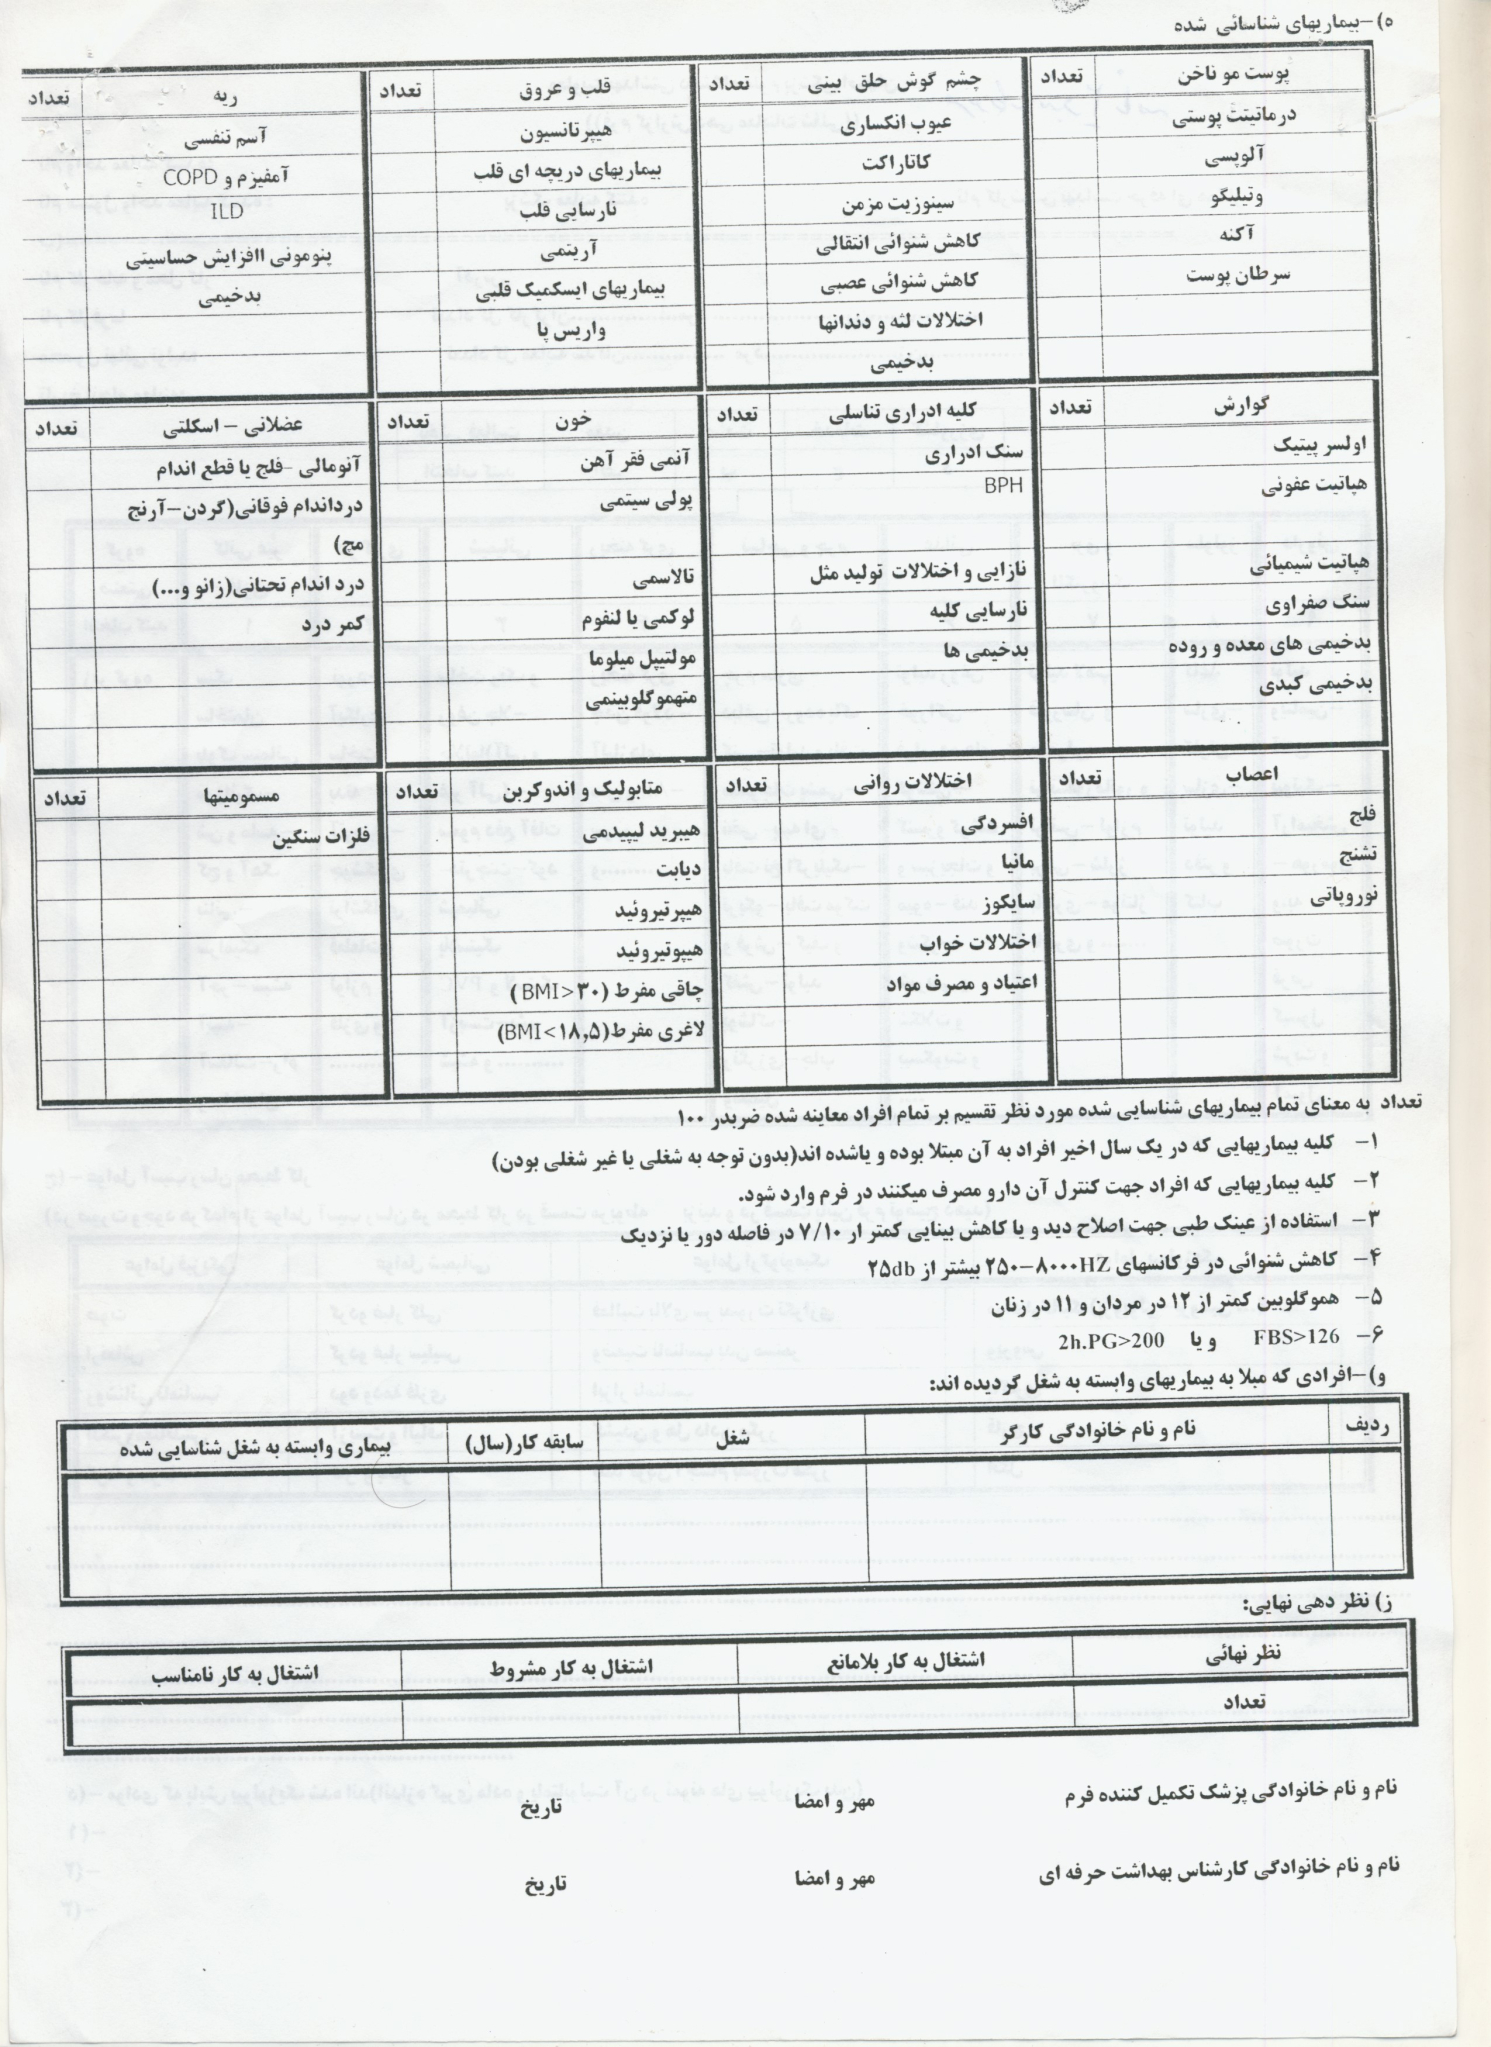 ه)-بیماریهای شناسائی شده
پوست مو ناخن تعداد چشم گوش حلق بینی تعداد قلب و عروق تعداد ریه تعداد
درماتیتت پوستی عیوب انکساری هیپرتانسیون آسم تنفسی
آلوپسی کاتاراکت بیماریهای دریچه ای قلب آمفیزم و COPD
وتیلیگو سینوزیت مزمن نارسایی قلب ILD
آکنه کاهش شنوائی انتقالی آریتمی پنومونی اافزایش حساسیتی
سرطان پوست کاهش شنوائی عصبی بیماریهای ایسکمیک قلبی بدخیمی
اختلالات لثه و دندانها واریس پا
بدخیمی
گوارش تعداد کلیه ادراری تناسلی تعداد خون تعداد عضلانی – اسکلتی تعداد
اولسر پپتیک سنک ادراری آنمی فقر آهن آنومالی -فلج یا قطع اندام
هپاتیت عفونی BPH پولی سیتمی درداندام فوقانی(گردن-آرنج
مچ)
هپاتیت شیمیائی نازایی و اختلالات تولید مثل تالاسمی درد اندام تحتانی(زانو و...)
سنگ صفراوی نارسایی کلیه لوکمی یا لنفوم کمر درد
بدخیمی های معده و روده بدخیمی ها مولتیپل میلوما
بدخیمی کبدی متهموگلوبینمی
اعصاب تعداد اختلالات روانی تعداد متابولیک و اندوکرین تعداد مسمومیتها تعداد
فلج افسردگی هیبرید لیپیدمی فلزات سنگین
تشنج مانیا دیابت
نوروپاتی سایکوز هیپرتیروئید
اختلالات خواب هیپوتیروئید
اعتیاد و مصرف مواد چاقی مفرط (BMI>۳۰)
لاغری مفرط(BMI<۱۸,۵)
تعداد به معنای تمام بیماریهای شناسایی شده مورد نظر تقسیم بر تمام افراد معاینه شده ضربدر ۱۰۰
۱- کلیه بیماریهایی که در یک سال اخیر افراد به آن مبتلا بوده و یاشده اند(بدون توجه به شغلی یا غیر شغلی بودن)
۲- کلیه بیماریهایی که افراد جهت کنترل آن دارو مصرف میکنند در فرم وارد شود.
۳- استفاده از عینک طبی جهت اصلاح دید و یا کاهش بینایی کمتر ار ۷/۱۰ در فاصله دور یا نزدیک
۴- کاهش شنوائی در فرکانسهای ۲۵۰-۸۰۰۰HZ بیشتر از ۲۵db
۵- هموگلوبین کمتر از ۱۲ در مردان و ۱۱ در زنان
۶- FBS>126 و یا 2h.PG>200
و)-افرادی که مبلا به بیماریهای وابسته به شغل گردیده اند:
ردیف نام و نام خانوادگی کارگر شغل سابقه کار(سال) بیماری وابسته به شغل شناسایی شده
ز) نظر دهی نهایی:
نظر نهائی اشتغال به کار بلامانع اشتغال به کار مشروط اشتغال به کار نامناسب
تعداد
نام و نام خانوادگی پزشک تکمیل کننده فرم مهر و امضا تاریخ
نام و نام خانوادگی کارشناس بهداشت حرفه ای مهر و امضا تاریخ